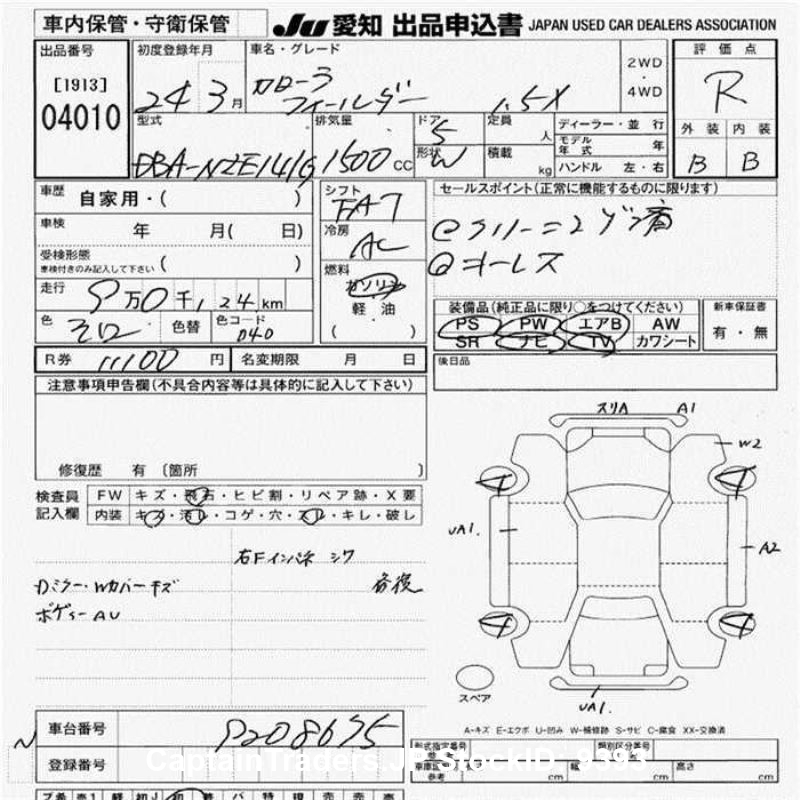 車内保管・守衛保管
JU 愛知 出品申込書 JAPAN USED CAR DEALERS ASSOCIATION
出品番号 初度登録年月 車名・グレード 2WD ・ 4WD 評価点
[1913] 04010 24 3月 カローラ フィールダー 1.5X R
型式 排気量 ドア 5 定員 人 ディーラー・並行 外装 内装
DBA-NZE141G 1500cc 形状 W 積載 kg モデル年式 年 B B
ハンドル 左・右
車歴 自家用・( ) シフト FA7 セールスポイント(正常に機能するものに限ります)
車検 年 月( 日) 冷房 AC
受検形態 車検付きのみ記入して下さい ( ) 燃料 ガソリン 軽油 ( )
@キーレス
走行 9万0千,124km 装備品(純正品に限り○をつけてください) 新車保証書
色 色替 色コード 040 PS PW エアB AW 有・無
SR ナビ TV カワシート
R券 11100円 名変期限 月 日 後日品
注意事項申告欄(不具合内容等は具体的に記入して下さい)
修復歴 有 〔箇所 〕
スリA A1
W2
検査員 記入欄 FW キズ・飛石・ヒビ割・リペア跡・X要
内装 キズ・汚レ・コゲ・穴・スレ・キレ・破レ
UA1. A2
4 4 4 4
右Fインパネ シワ
Dミラー・Wカバーキズ
ボディーAU
スペア
UA1.
A-キズ E-エクボ U-凹み W-補修跡 S-サビ C-腐食 XX-交換済
車台番号 8208675
登録番号
型式指定番号 類別区分番号
車庫区分 参考 cm 幅 cm 高さ cm
CaptainTraders JP StockID: 9393